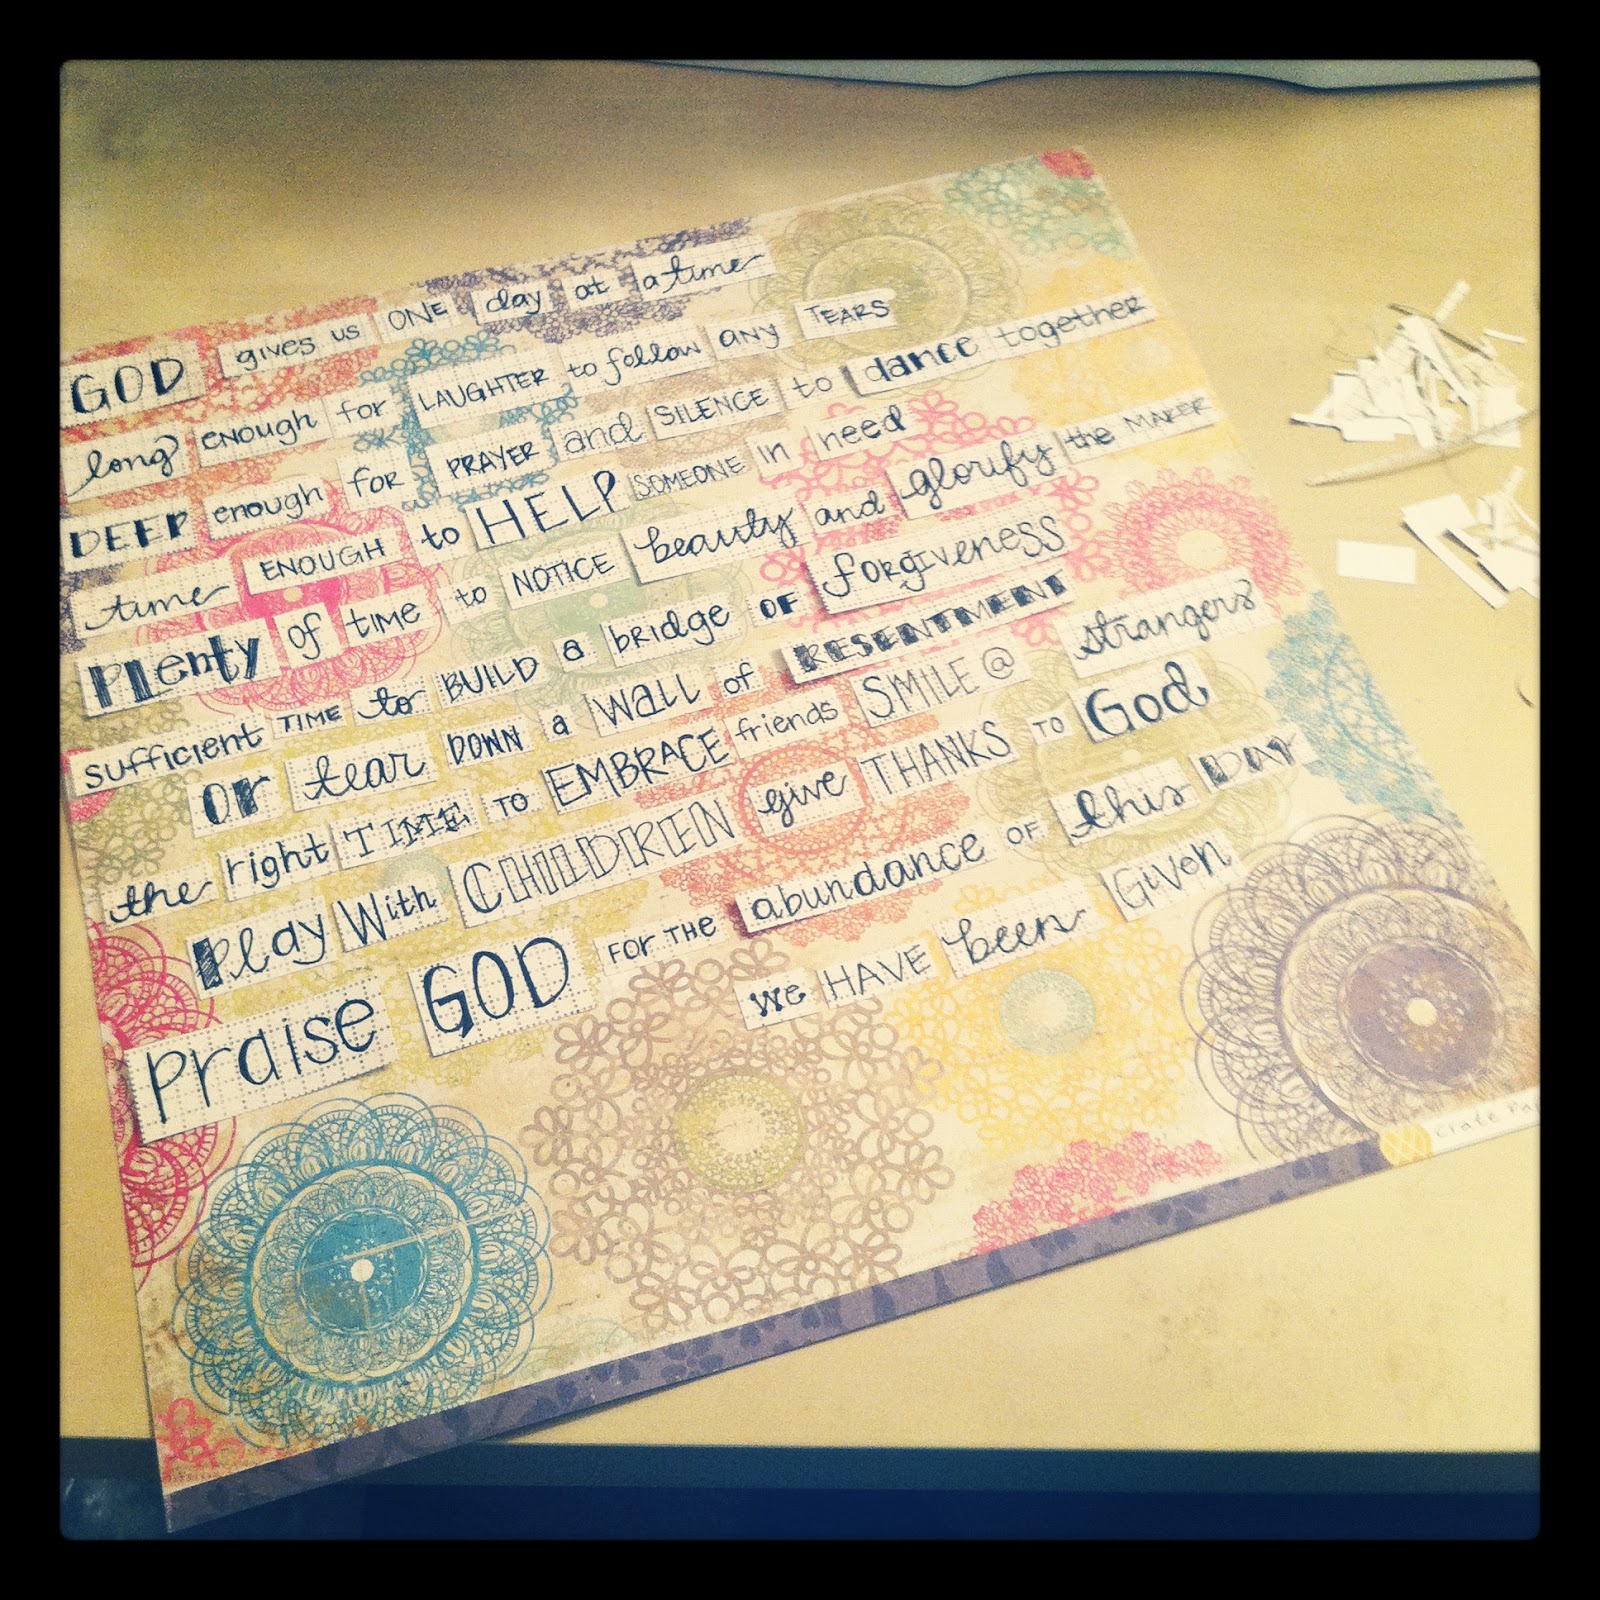 GOD gives us ONE day at a time
long enough for LAUGHTER to follow any TEARS
DEEP enough for PRAYER and SILENCE to dance together
time ENOUGH to HELP SOMEONE in need
PLenty of TIME to NOTICE beauty and glorify the MAKER
SUFFICIENT TIME to BUILD a bridge OF forgiveness
or tear DOWN a WALL of RESENTMENT
the right TIME TO EMBRACE friends SMILE @ strangers
PLAY With CHILDREN give THANKS TO God
PRAISE GOD FOR THE abundance OF this DAY
we HAVE been Given
Crate